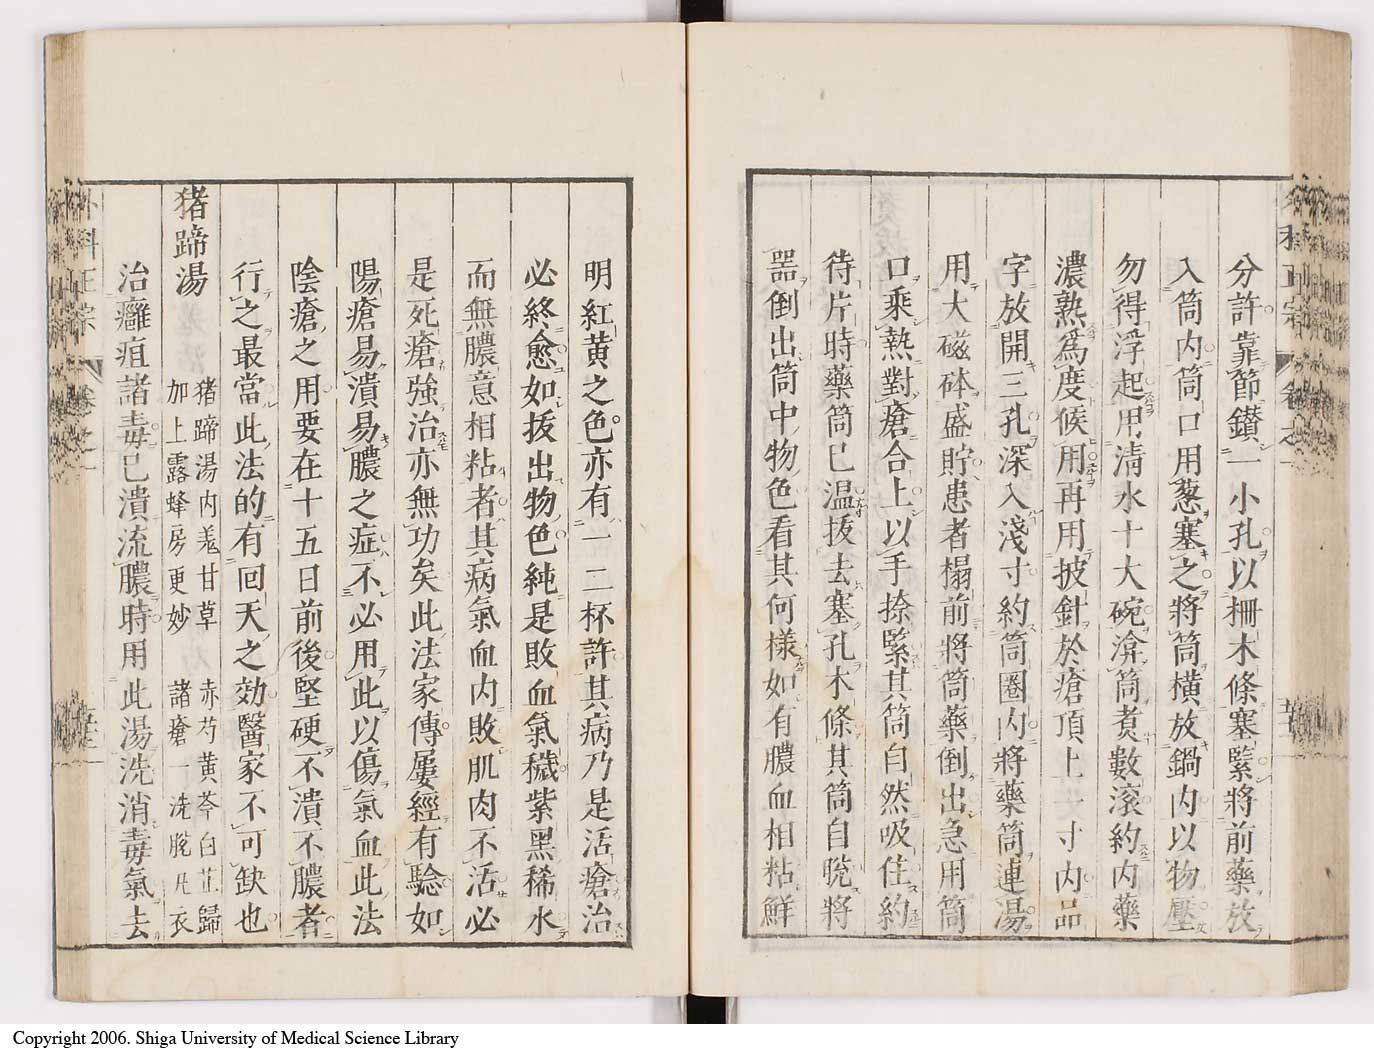 分許靠節鑚一小孔以柵木條塞緊將前藥放
入筒内筒口用葱塞之將筒橫放鍋内以物壓
勿得浮起用淸水十大碗渰筒煮數滚約内藥
濃熟爲度候用再用披針於瘡頂上一寸内品
字放開三孔深入淺寸約筒圈内將藥筒連湯
用大磁砵盛貯患者榻前將筒藥倒出急用筒
口乘熱對瘡合上以手捺緊其筒自然吸住約
待片時藥筒已温拔去塞孔木條其筒自脫將
噐倒出筒中物色看其何樣如有膿血相粘鮮
明紅黄之色亦有一二杯許其病乃是活瘡治
必終愈如拔出物色純是敗血氣穢紫黑稀水
而無膿意相粘者其病氣血内敗肌肉不活必
是死瘡強治亦無功矣此法家傳屢經有驗如
陽瘡易潰易膿之症不必用此以傷氣血此法
陰瘡之用要在十五日前後堅硬不潰不膿者
行之最當此法的有回天之効醫家不可缺也
猪蹄湯 猪蹄湯内羗甘草 赤芍黄芩白芷歸
加上露蜂房更妙 諸瘡一洗脫凡衣
治癰疽諸毒已潰流膿時用此湯洗消毒氣去
外科正宗 卷之
外科正宗 卷之一
Copyright 2006. Shiga University of Medical Science Library